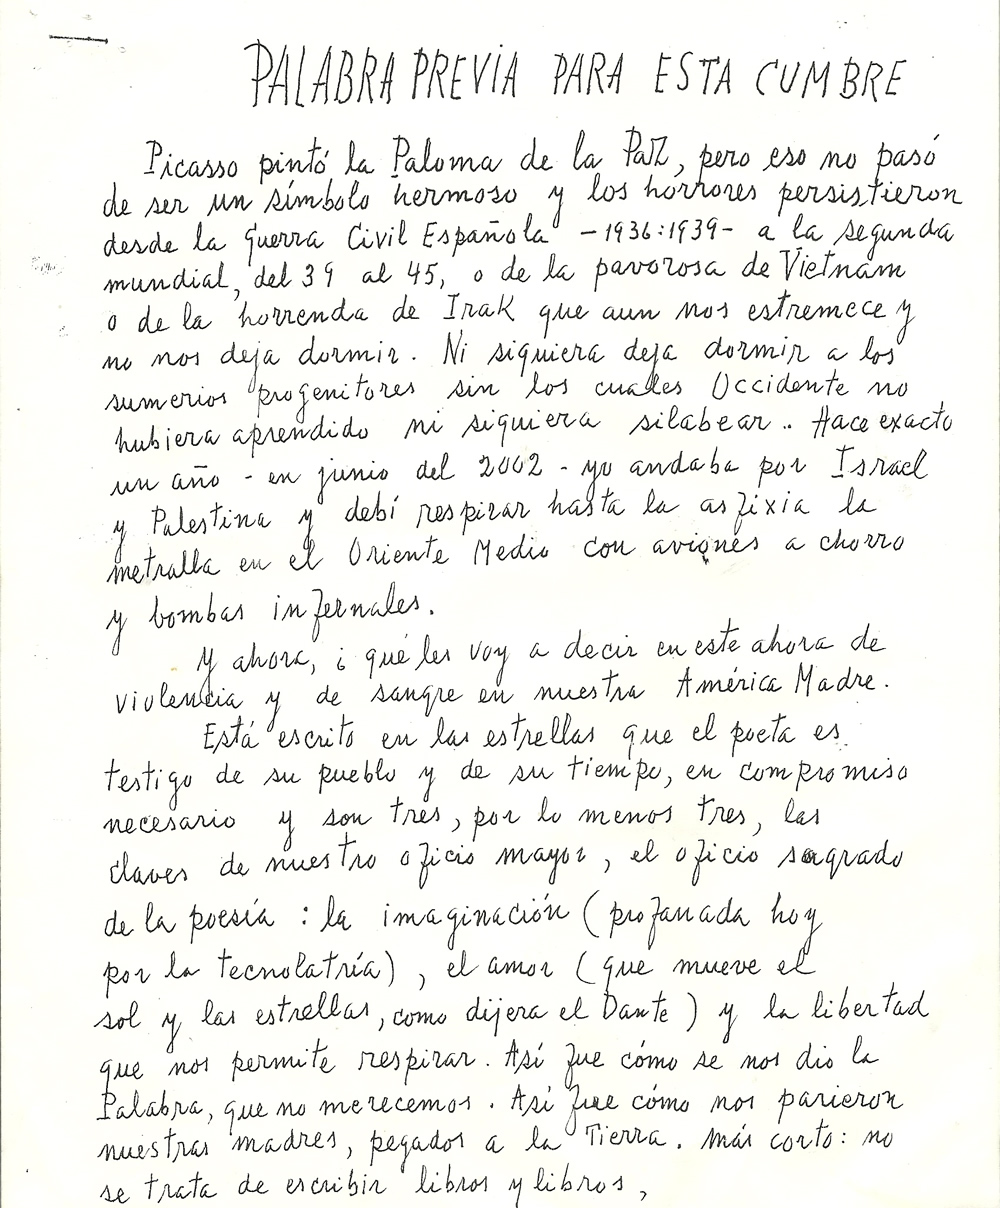 PALABRA PREVIA PARA ESTA CUMBRE
Picasso pintó la Paloma de la Paz, pero eso no pasó
de ser un símbolo hermoso y los horrores persistieron
desde la guerra Civil Española -1936:1939- a la segunda
mundial, del 39 al 45, o de la pavorosa de Vietnam
o de la horrenda de Irak que aun nos estremece y
no nos deja dormir. Ni siquiera deja dormir a los
sumerios progenitores sin los cuales Occidente no
hubiera aprendido ni siquiera silabear.. Hace exacto
un año - en junio del 2002 - yo andaba por Israel
y Palestina y debí respirar hasta la asfixia la
metralla en el Oriente Medio con aviones a chorro
y bombas infernales.
Y ahora, ¿ qué les voy a decir en este ahora de
violencia y de sangre en nuestra América Madre.
Está escrito en las estrellas que el poeta es
testigo de su pueblo y de su tiempo, en compromiso
necesario y son tres, por lo menos tres, las
claves de nuestro oficio mayor, el oficio sagrado
de la poesía : la imaginación ( profanada hoy
por la tecnolatría) , el amor ( que mueve el
sol y las estrellas, como dijera el Dante ) y la libertad
que nos permite respirar. Así fue cómo se nos dio la
Palabra, que no merecemos. Así fue cómo nos parieron
nuestras madres, pegados a la Tierra. Más corto: no
se trata de escribir libros y libros,